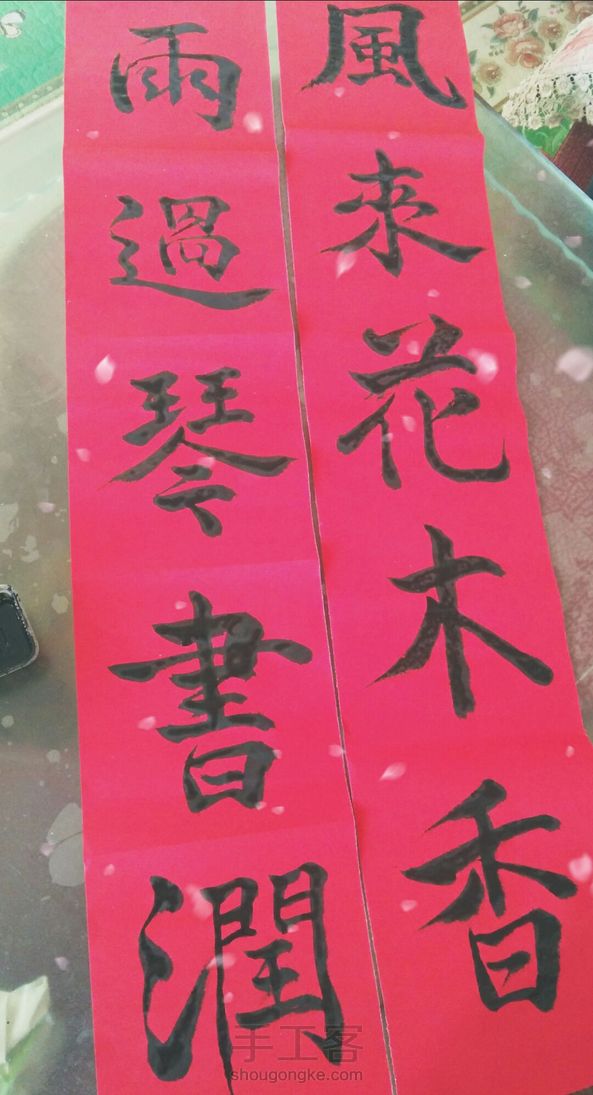 風來花木香
雨過琴書潤
手工客
shougongke.com